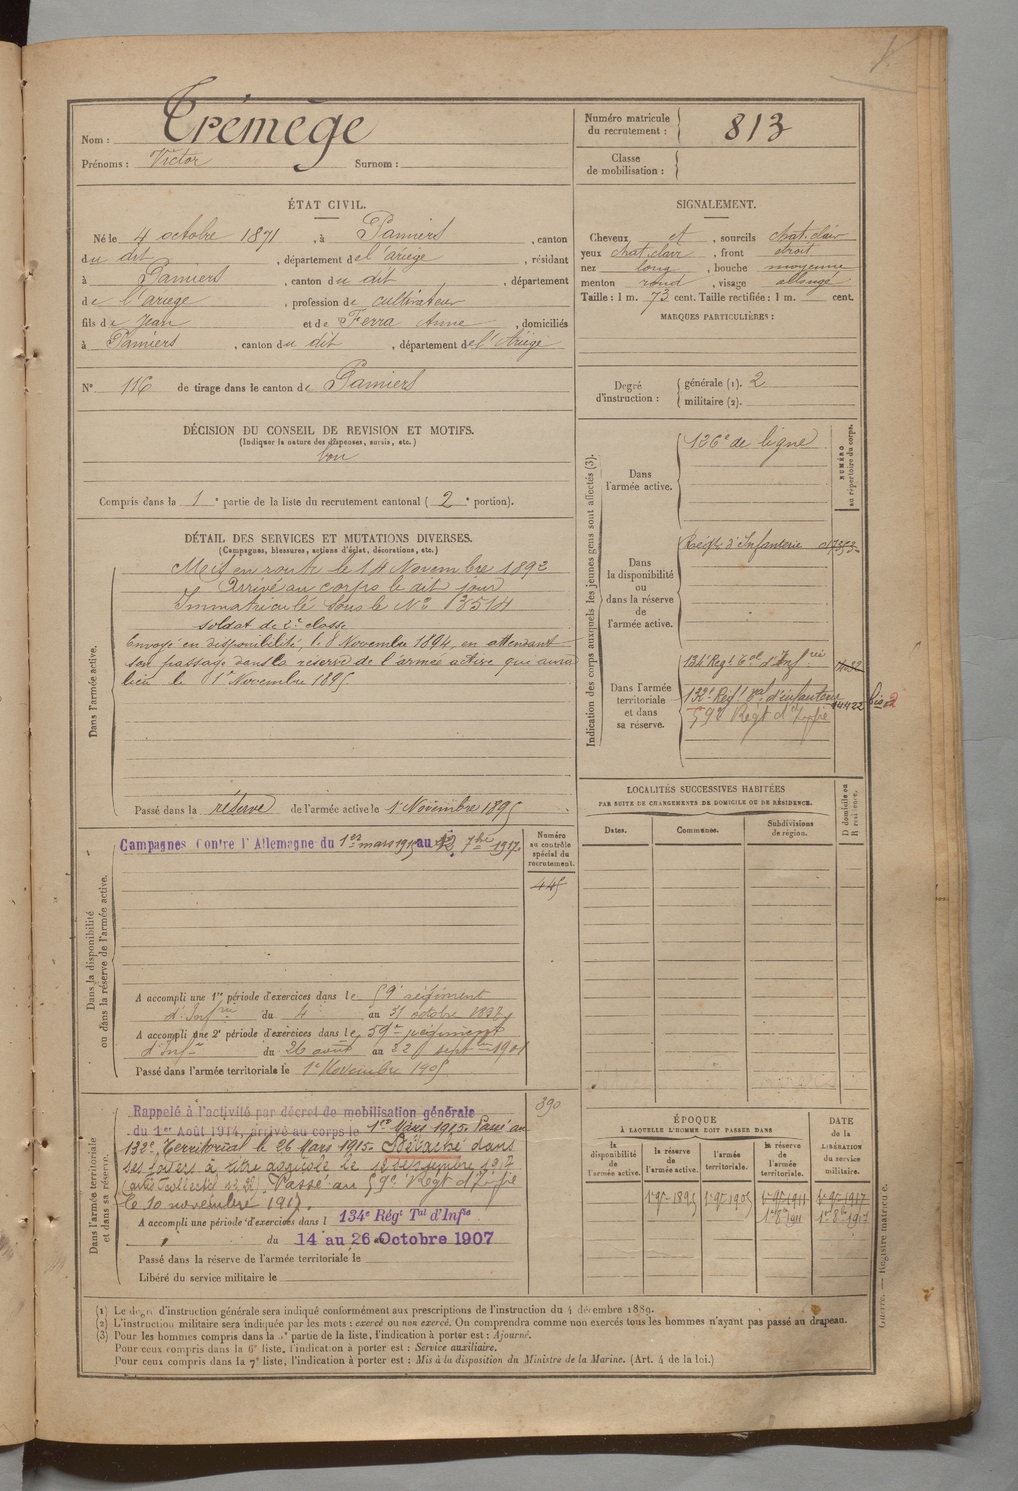 Nom : Trémège
Prénoms : Victor Surnom :
Numéro matricule du recrutement : 813
Classe de mobilisation :
ÉTAT CIVIL.
Né le 4 octobre 1871, à Pamiers, canton
du dit, département de l'ariège, résidant
à Pamiers, canton du dit, département
de l'ariege, profession de cultivateur
fils de Jean et de Ferra Anne, domiciliés
à Pamiers, canton du dit, département de l'Ariège
N° 116 de tirage dans le canton de Pamiers
SIGNALEMENT.
Cheveux et, sourcils chat. clair
yeux chat. clair, front droit
nez long, bouche moyenne
menton rond, visage allongé
Taille : 1 m. 73 cent. Taille rectifiée : 1 m. cent.
MARQUES PARTICULIÈRES :
Degré d'instruction : générale (1). 2
militaire (2).
DÉCISION DU CONSEIL DE REVISION ET MOTIFS.
(Indiquer la nature des dispenses, sursis, etc.)
bon
Compris dans la 1e partie de la liste du recrutement cantonal (2e portion).
DÉTAIL DES SERVICES ET MUTATIONS DIVERSES.
(Campagnes, blessures, actions d'éclat, décorations, etc.)
Dans l'armée active.
Mis en route le 14 Novembre 1892
Arrivé au corps le dit jour
Immatriculé sous le No 13514
soldat de 2e classe
Envoyé en disponibilité, le 8 Novembre 1894, en attendant
son passage dans la réserve de l'armée active qui aura
lieu le 1r Novembre 1895
Passé dans la réserve de l'armée active le 1r Novembre 1895
Indication des corps auxquels les jeunes gens sont affectés (3).
NUMÉRO au répertoire du corps.
Dans l'armée active.
126e de ligne
Dans la disponibilité ou dans la réserve de l'armée active.
Régt d'Infanterie
Dans l'armée territoriale et dans sa réserve.
134e Regt Tal d'Infrie
132e Regt Tal d'infanterie 14422 bis
59e Regt d'Infie
LOCALITÉS SUCCESSIVES HABITÉES
PAR SUITE DE CHANGEMENTS DE DOMICILE OU DE RÉSIDENCE.
D domicile ou R résidence.
Dates. Communes. Subdivisions de région.
Dans la disponibilité ou dans la réserve de l'armée active.
Campagnes Contre l'Allemagne du 1er mars 1915 au 12 7bre 1917.
Numéro au contrôle spécial du recrutement.
445
A accompli une 1re période d'exercices dans le 59e régiment
d'Infrie du 4 au 31 octobre 1898
A accompli une 2e période d'exercices dans le 59e régiment
d'Infie du 26 août au 22 septbre 1901
Passé dans l'armée territoriale le 1r Novembre 1905
Dans l'armée territoriale et dans sa réserve.
390
Rappelé à l'activité par décret de mobilisation générale
du 1er Août 1914, arrivé au corps le 1er Mars 1915. Passé au
132e Territorial le 26 Mars 1915. Détaché dans
ses foyers à titre agricole le 12 septembre 1917
Passé au 59e Regt d'Infie
le 10 novembre 1917.
A accompli une période d'exercices dans l 134e Régt Tal d'Infie
du 14 au 26 Octobre 1907
Passé dans la réserve de l'armée territoriale le
Libéré du service militaire le
ÉPOQUE
À LAQUELLE L'HOMME DOIT PASSER DANS
la disponibilité de l'armée active.
la réserve de l'armée active.
l'armée territoriale.
la réserve de l'armée territoriale.
DATE de la LIBÉRATION du service militaire.
1r 9bre 1895 1r 9bre 1905 1r 9bre 1911 1r 9bre 1917
1r 8bre 1911 1r 8bre 1917
(1) Le degré d'instruction générale sera indiqué conformément aux prescriptions de l'instruction du 4 décembre 1889.
(2) L'instruction militaire sera indiquée par les mots : exercé ou non exercé. On comprendra comme non exercés tous les hommes n'ayant pas passé au drapeau.
(3) Pour les hommes compris dans la 5e partie de la liste, l'indication à porter est : Ajourné.
Pour ceux compris dans la 6e liste, l'indication à porter est : Service auxiliaire.
Pour ceux compris dans la 7e liste, l'indication à porter est : Mis à la disposition du Ministre de la Marine. (Art. 4 de la loi.)
Guerre. — Registre matricule.